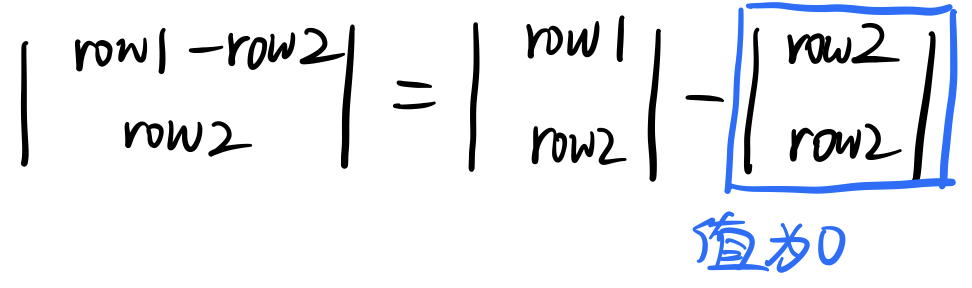 | row1 - row2 | = | row1 | - | row2 |
| row2 | | row2 | | row2 |
值为0